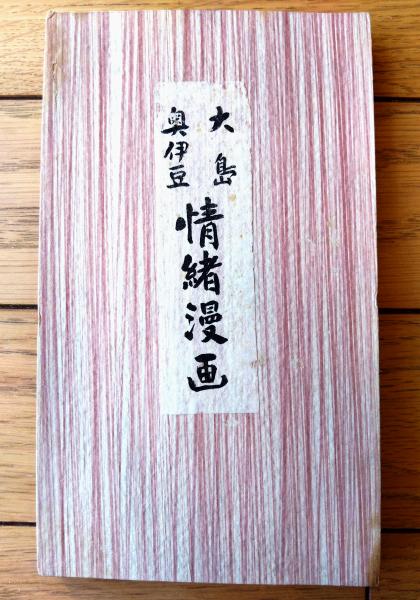 大島
奥伊豆
情緒漫画